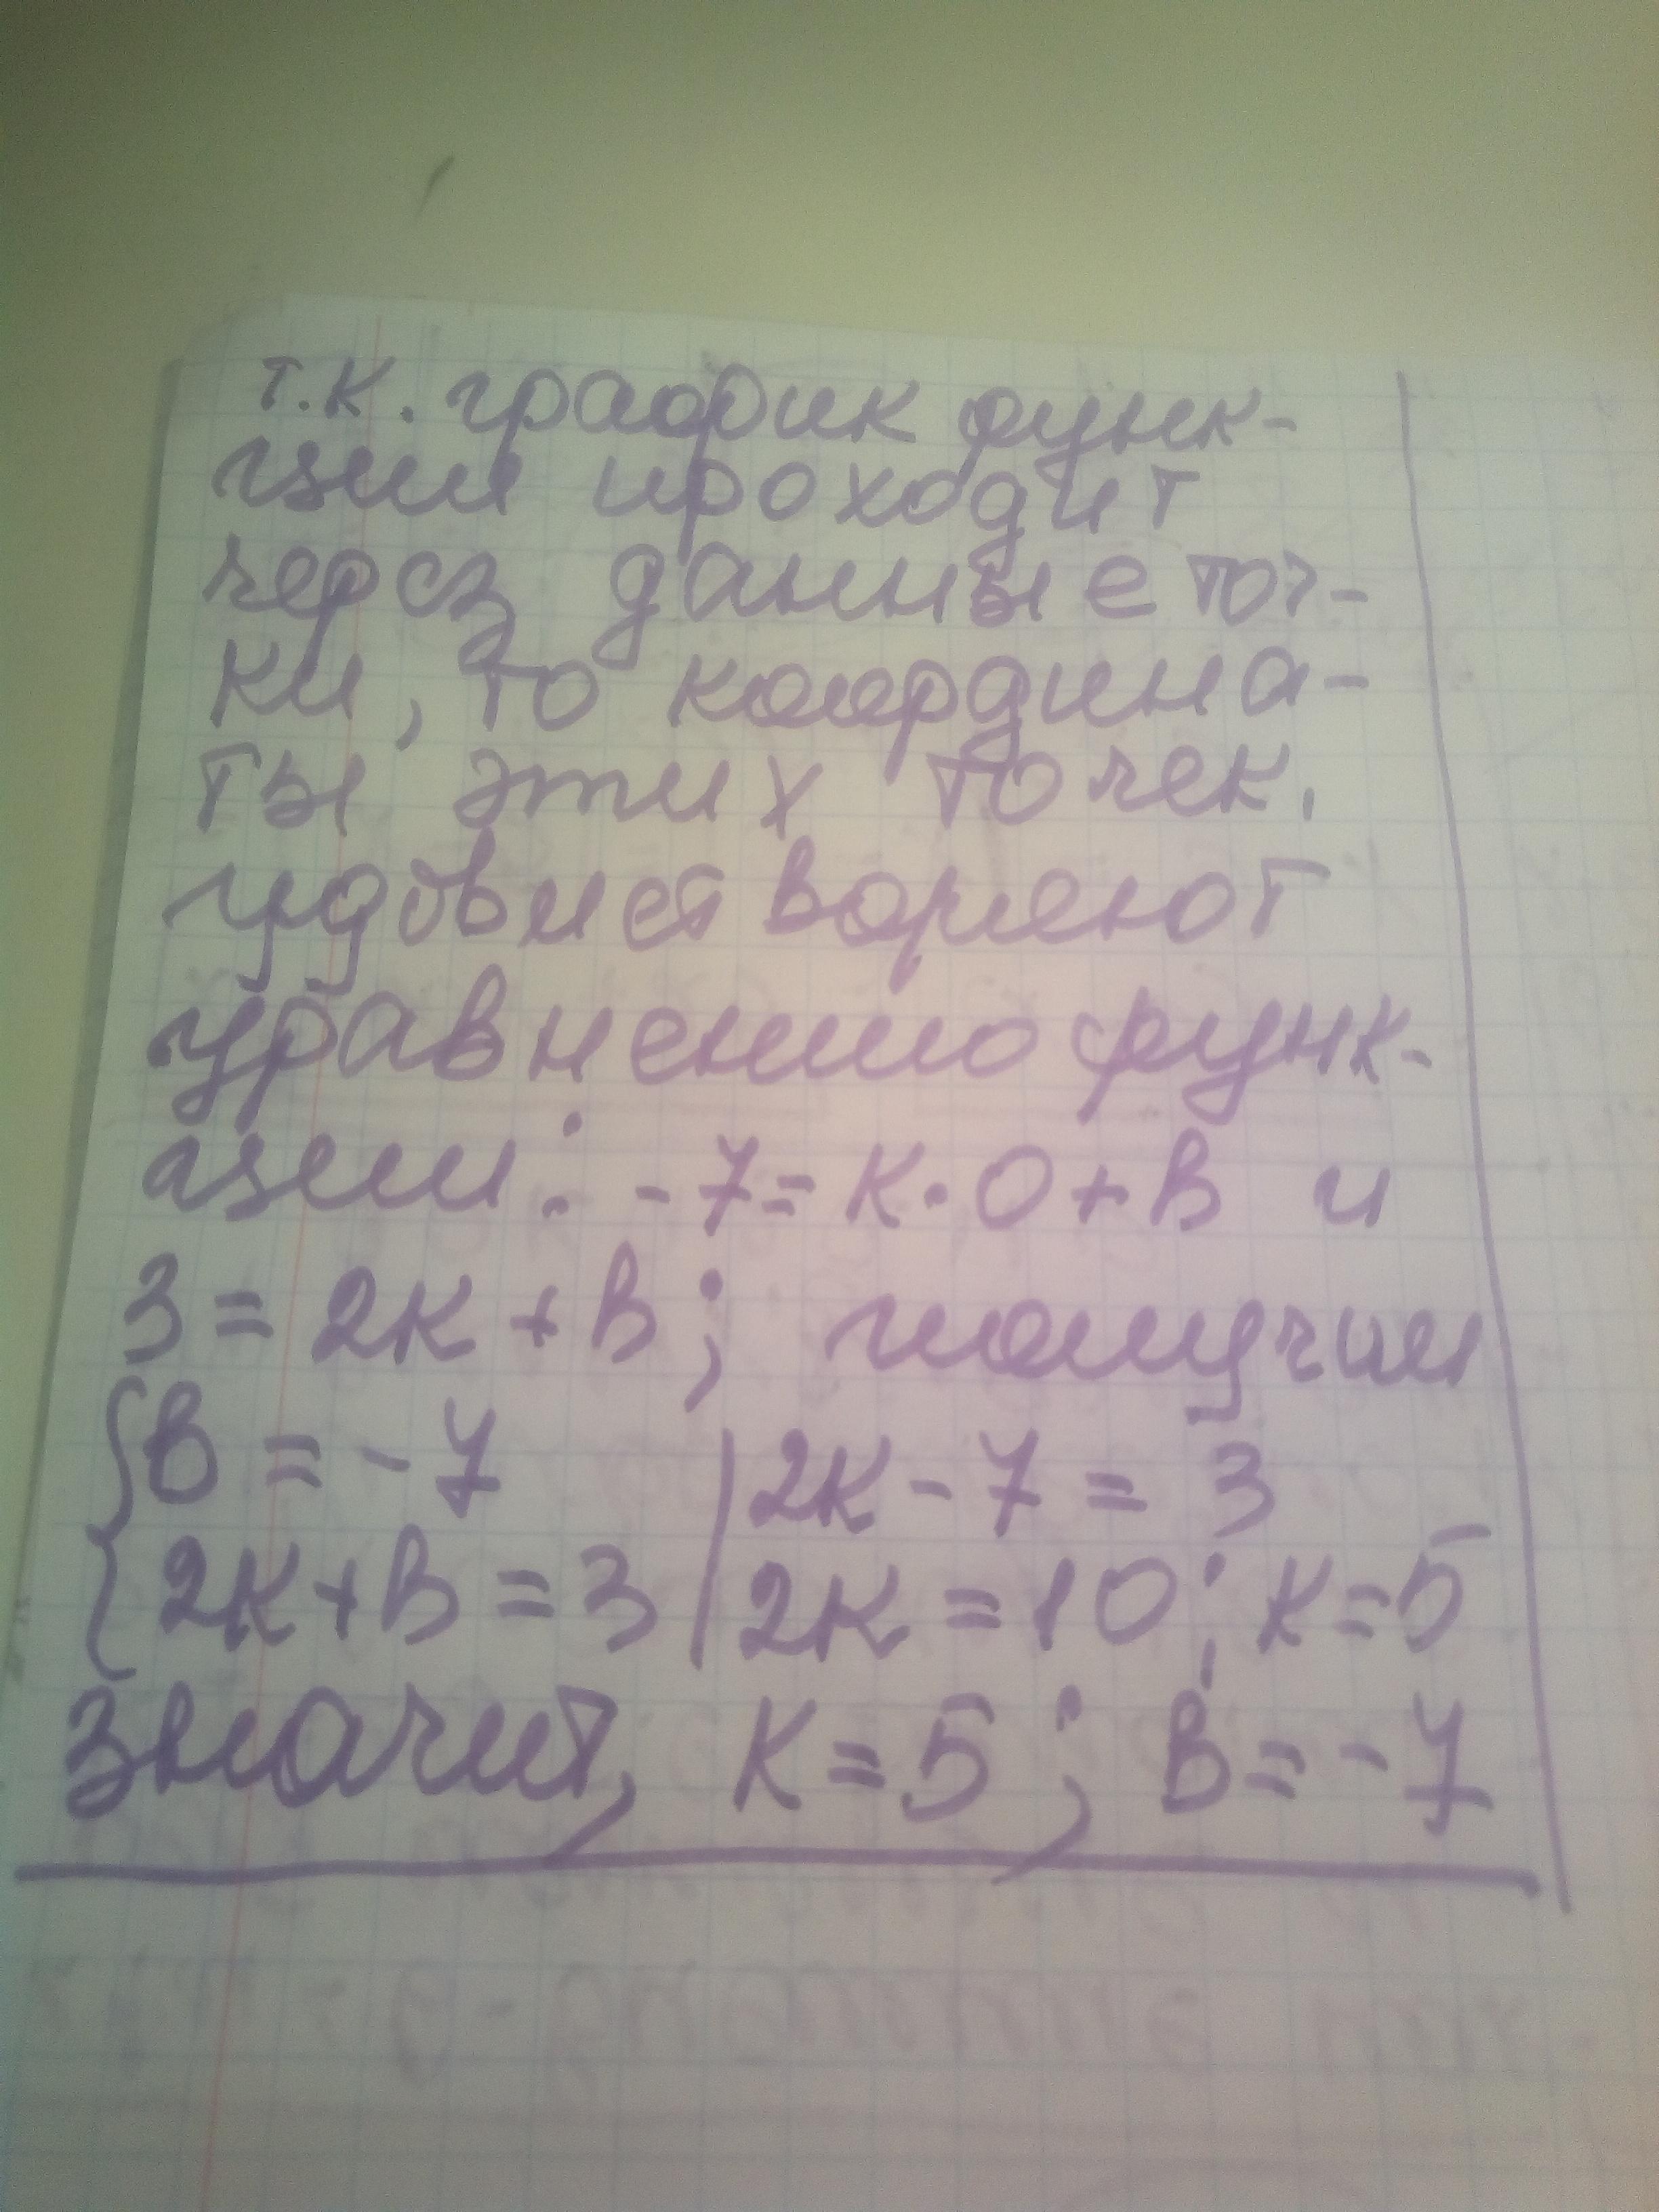 т.к. график функ-
ции проходит
через данные точ-
ки, то координа-
ты этих точек
удовлетворяют
уравнению функ-
ции: -7=к·0+в и
3=2к+в; получим
{в=-7 | 2к-7=3
{2к+в=3 | 2к=10; к=5
значит, к=5; в=-7